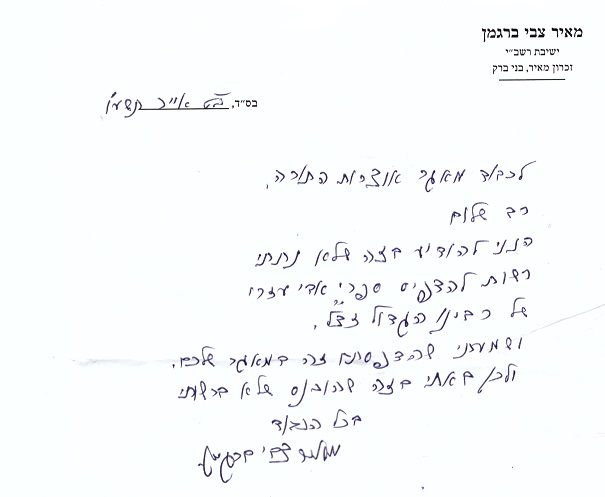 מאיר צבי ברגמן
ישיבת רשב״י
זכרון מאיר, בני ברק
בס״ד, כ״ט אייר תשע״ו
לכבוד מאגר אוצרות התורה,
רב שלום
הנני להודיע בזה שלא נתתי
רשות להדפיס ספרי אבי עזרי
של רבינו הגדול זצ״ל,
ושמעתי שהדפסתם זה במאגר שלכם,
ולכן באתי בזה שהוכנס שלא ברשותי
בכל הכבוד
מאיר צבי ברגמן